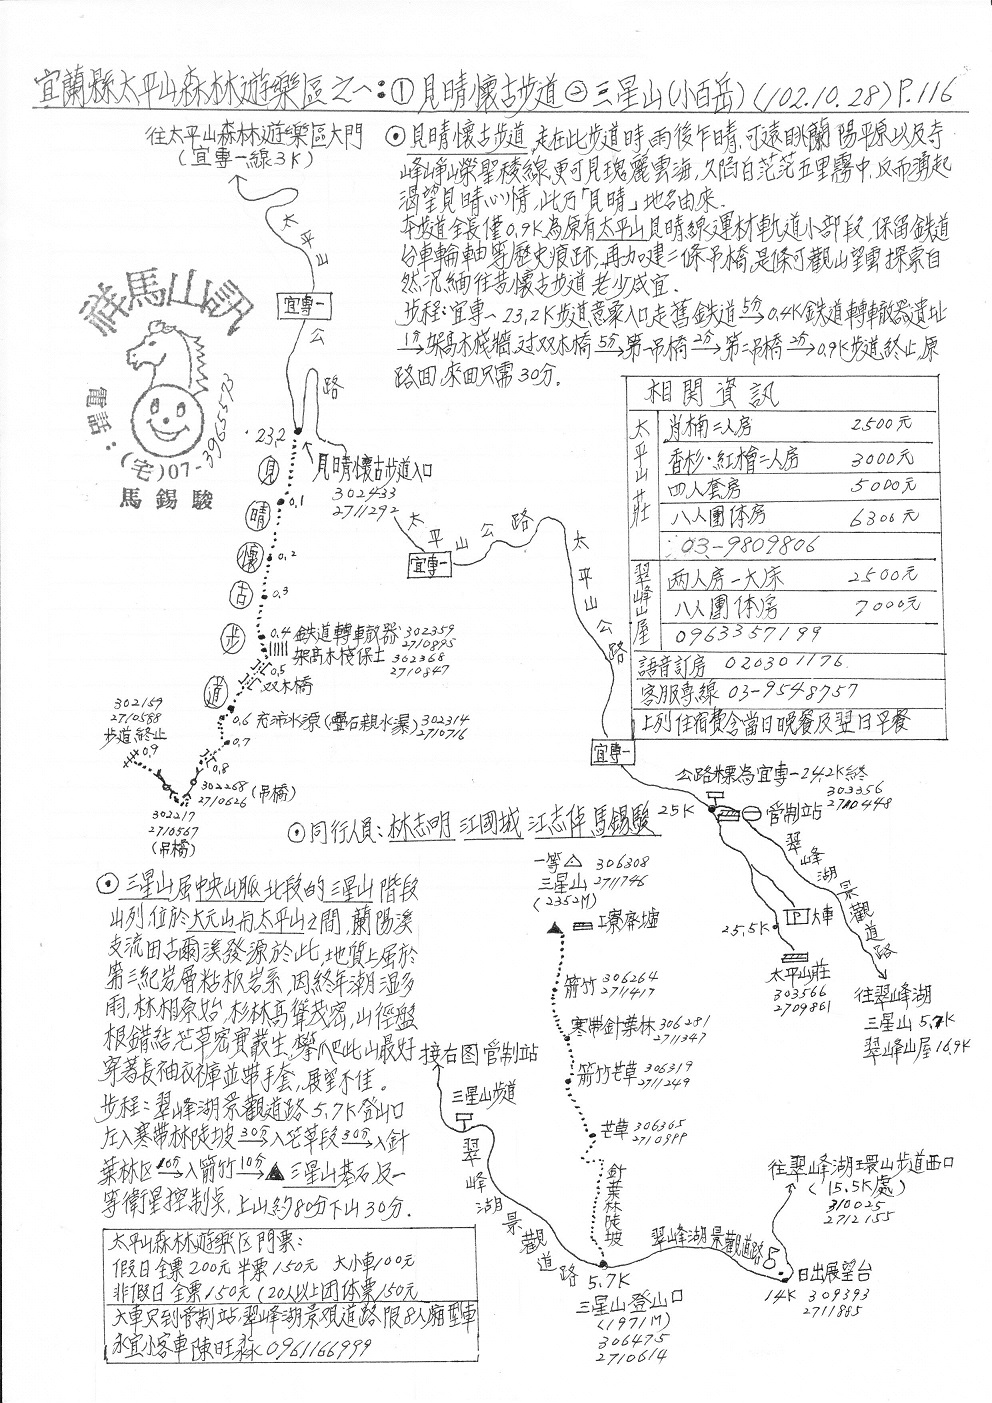 宜蘭縣太平山森林遊樂區之一:①見晴懷古步道②三星山(小百岳)(102.10.28)P.116
往太平山森林遊樂區大門
(宜專一線3K)
太平山公路
宜專一
⊙見晴懷古步道,走在此步道時,雨後乍晴,可遠眺蘭陽平原以及寺
峰崢嶸聖稜線,更可見瑰麗雲海,久陷白茫茫五里霧中,反而湧起
渴望見晴心情,此乃「見晴」地名由來.
本步道全長僅0.9K為原有太平山見晴線運材軌道小部段,保留鉄道
台車輪軸等歷史痕跡,再加建二條吊橋,是條可觀山望雲探索自
然,沉緬往昔懷古步道老少咸宜.
步程:宜專一23.2K步道意象入口走舊鉄道5分→0.4K鉄道轉轍器遺址
1分→架高木棧牆,过双木橋5分→第一吊橋2分→第二吊橋2分→0.9K步道終止,原
路回,來回只需30分.
祥馬山訊
電話:(宅)07-3965573
馬錫駿
相関資訊
太平山莊
肖楠二人房 2500元
香杉·紅檜二人房 3000元
四人套房 5000元
八人團体房 6300元
03-9809806
翠峰山屋
兩人房一大床 2500元
八人團体房 7000元
0963357199
語音訂房 020301176
客服專線 03-9548757
上列住宿費含當日晚餐及翌日早餐
23.2
見晴懷古步道入口
302433
2711292
見晴懷古步道
0.1
0.2
0.3
0.4 鉄道轉轍器 302359
2710895
架高木棧保土 302368
2710847
0.5
双木橋
0.6 充沛水源(疊石親水瀑) 302314
2710716
0.7
0.8
302268 (吊橋)
2710626
302217
2710567
(吊橋)
302159
2710588
步道終止
0.9
太平山公路
宜專一
太平山公路
宜專一
公路標為宜專一24.2K終
303356
2710448
25K
管制站
翠峰湖景觀道路
P 大車
25.5K
太平山莊
303566
2709861
往翠峰湖
三星山 5.7K
翠峰山屋 16.9K
⊙同行人員:林志明 江國城 江志偉 馬錫駿
⊙三星山屬中央山脈北段的三星山階段
山列,位於大元山与太平山之間,蘭陽溪
支流田古爾溪發源於此,地質上屬於
第三紀岩層粘板岩系,因終年潮溼多
雨,林相原始,杉林高聳茂密,山徑盤
根錯結,芒草密實叢生,攀爬此山最好
穿著長袖衣褲並帶手套,展望不佳.
步程:翠峰湖景觀道路5.7K登山口
左入寒帶林陡坡30分→入芒草段30分→入針
葉林区10分→入箭竹10分→▲三星山基石及一
等衛星控制点,上山約80分下山30分.
一等△ 306308
三星山 2711746
(2352M)
工寮廢墟
箭竹 306264
2711417
寒帶針葉林 306281
2711347
箭竹芒草 306319
2711249
芒草 306365
2710999
針葉林陡坡
接右图管制站
三星山步道
翠峰湖景觀道路
5.7K
三星山登山口
(1971M)
306475
2710614
翠峰湖景觀道路
往翠峰湖環山步道西口
(15.5K處)
310025
2712155
日出展望台
14K 309393
2711885
太平山森林遊樂区門票:
假日全票200元半票150元 大小車100元
非假日全票150元(20人以上団体票150元
大車只到管制站,翠峰湖景观道路限8人廂型車
永宜小客車陳旺淼0961166999